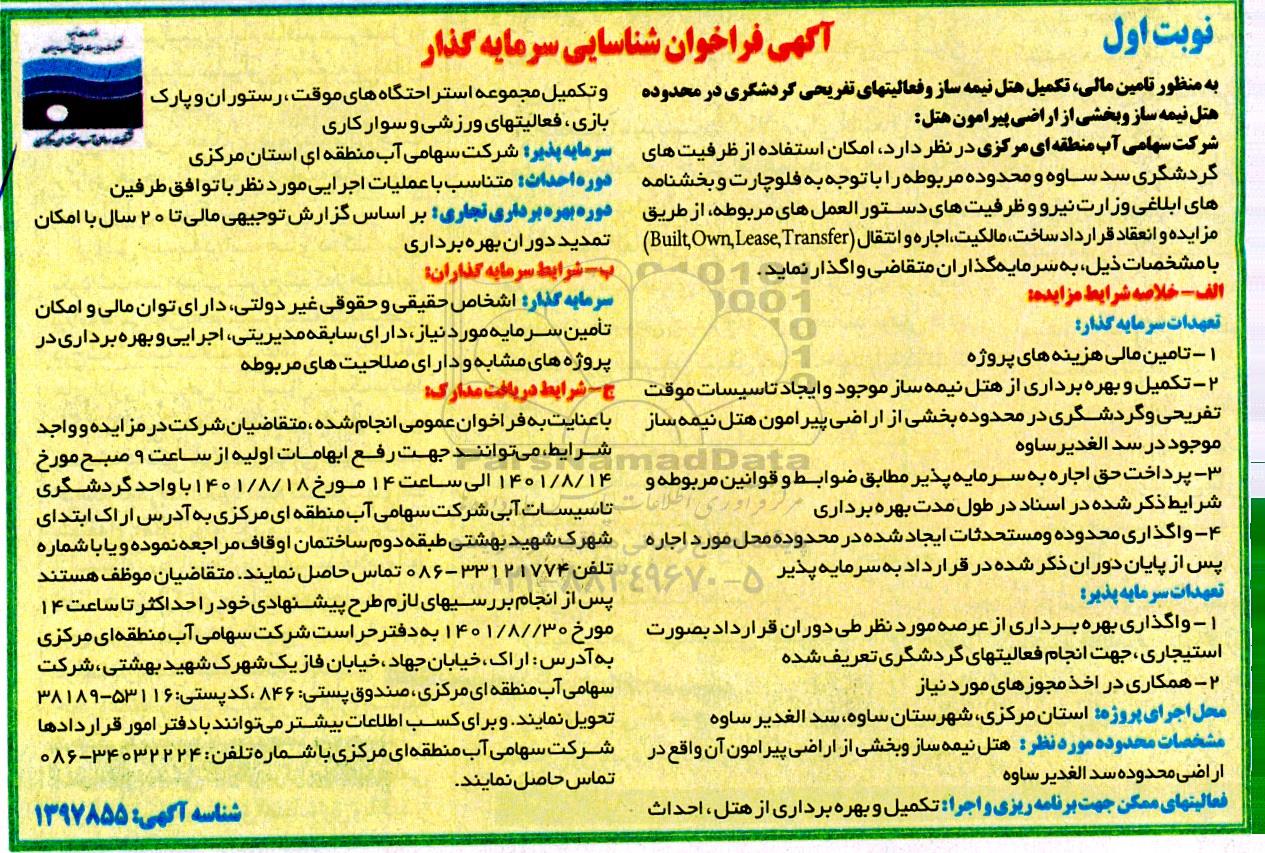 نوبت اول
آگهی فراخوان شناسایی سرمایه گذار
به منظور تامین مالی، تکمیل هتل نیمه ساز و فعالیتهای تفریحی گردشگری در محدوده
هتل نیمه ساز و بخشی از اراضی پیرامون هتل:
شرکت سهامی آب منطقه ای مرکزی در نظر دارد، امکان استفاده از ظرفیت های
گردشگری سد ساوه و محدوده مربوطه را با توجه به فلوچارت و بخشنامه
های ابلاغی وزارت نیرو و ظرفیت های دستور العمل های مربوطه، از طریق
مزایده و انعقاد قرارداد ساخت، مالکیت، اجاره و انتقال (Built,Own,Lease,Transfer)
با مشخصات ذیل، به سرمایه‌گذاران متقاضی واگذار نماید.
الف- خلاصه شرایط مزایده:
تعهدات سرمایه گذار:
۱- تامین مالی هزینه های پروژه
۲- تکمیل و بهره برداری از هتل نیمه ساز موجود و ایجاد تاسیسات موقت
تفریحی و گردشگری در محدوده بخشی از اراضی پیرامون هتل نیمه ساز
موجود در سد الغدیر ساوه
۳- پرداخت حق اجاره به سرمایه پذیر مطابق ضوابط و قوانین مربوطه و
شرایط ذکر شده در اسناد در طول مدت بهره برداری
۴- واگذاری محدوده ومستحدثات ایجاد شده در محدوده محل مورد اجاره
پس از پایان دوران ذکر شده در قرارداد به سرمایه پذیر
تعهدات سرمایه پذیر:
۱- واگذاری بهره برداری از عرصه مورد نظر طی دوران قرارداد بصورت
استیجاری، جهت انجام فعالیتهای گردشگری تعریف شده
۲- همکاری در اخذ مجوزهای مورد نیاز
محل اجرای پروژه: استان مرکزی، شهرستان ساوه، سد الغدیر ساوه
مشخصات محدوده مورد نظر: هتل نیمه ساز وبخشی از اراضی پیرامون آن واقع در
اراضی محدوده سد الغدیر ساوه
فعالیتهای ممکن جهت برنامه ریزی و اجرا: تکمیل و بهره برداری از هتل، احداث
و تکمیل مجموعه استراحتگاه های موقت، رستوران و پارک
بازی، فعالیتهای ورزشی و سوار کاری
سرمایه پذیر: شرکت سهامی آب منطقه ای استان مرکزی
دوره احداث: متناسب با عملیات اجرایی مورد نظر با توافق طرفین
دوره بهره برداری تجاری: بر اساس گزارش توجیهی مالی تا ۲۰ سال با امکان
تمدید دوران بهره برداری
ب- شرایط سرمایه گذاران:
سرمایه گذار: اشخاص حقیقی و حقوقی غیر دولتی، دارای توان مالی و امکان
تأمین سرمایه مورد نیاز، دارای سابقه مدیریتی، اجرایی و بهره برداری در
پروژه های مشابه و دارای صلاحیت های مربوطه
ج- شرایط دریافت مدارک:
با عنایت به فراخوان عمومی انجام شده، متقاضیان شرکت در مزایده و واجد
شرایط، می‌توانند جهت رفع ابهامات اولیه از ساعت ۹ صبح مورخ
۱۴۰۱/۸/۱۴ الی ساعت ۱۴ مورخ ۱۴۰۱/۸/۱۸ با واحد گردشگری
تاسیسات آبی شرکت سهامی آب منطقه ای مرکزی به آدرس اراک ابتدای
شهرک شهید بهشتی طبقه دوم ساختمان اوقاف مراجعه نموده و یا با شماره
تلفن ۳۳۱۲۱۷۷۴-۰۸۶ تماس حاصل نمایند. متقاضیان موظف هستند
پس از انجام بررسیهای لازم طرح پیشنهادی خود را حداکثر تا ساعت ۱۴
مورخ ۱۴۰۱/۸//۳۰ به دفتر حراست شرکت سهامی آب منطقه‌ای مرکزی
به آدرس: اراک، خیابان جهاد، خیابان فاز یک شهرک شهید بهشتی، شرکت
سهامی آب منطقه ای مرکزی، صندوق پستی: ۸۴۶، کدپستی: ۵۳۱۱۶-۳۸۱۸۹
تحویل نمایند. و برای کسب اطلاعات بیشتر می‌توانند با دفتر امور قراردادها
شرکت سهامی آب منطقه‌ای مرکزی با شماره تلفن: ۳۴۰۳۲۲۲۴-۰۸۶
تماس حاصل نمایند.
شناسه آگهی: ۱۳۹۷۸۵۵
ParsNamadData
۰۲۱-۸۸۳۴۹۶۷۰-۵